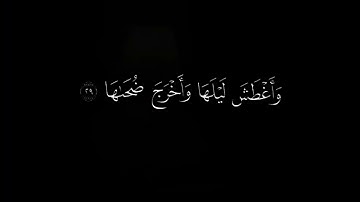 وَأَغْطَشَ لَيْلَهَا وَأَخْرَجَ ضُحَىٰهَا ٢٩